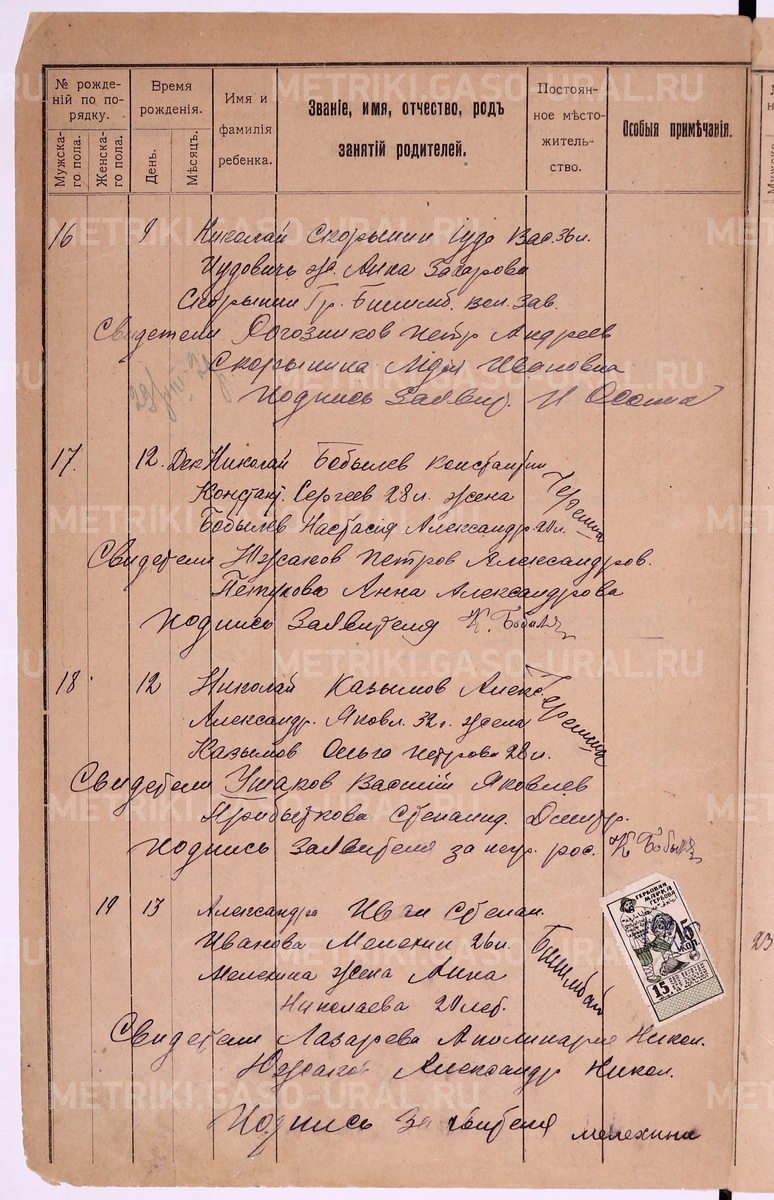 № рожде-
ній по по-
рядку.
Время
рожденія.
Имя и
фамилія
ребенка.
Званіе, имя, отчество, родъ
занятій родителей.
Постоян-
ное мѣсто-
житель-
ство.
Особыя примѣчанія.
Мужска-
го пола.
Женска-
го пола.
День.
Мѣсяцъ.
16 9 Николай Скорынин Вас. 36 л.
ж. Анна Захарова
Скорынин Гр. Билимб. вол. зав.
Свидетели Рогозников Петр Андреев
Скорынина Лидия Ивановна
Подпись Заявит.
17. 12. Дек Николай Бобылев Константин
Констант. Сергеев 28 л. жена
Бобылев Настасия Александр. 20 л.
Свидетели Южаков Петров Александров.
Петухова Анна Александрова
Подпись Заявителя К. Бобыл
18 12 Николай Казымов Алекс.
Александр. Яковл. 32 г. жена
Казымов Ольга Петрова 28 л.
Свидетели Ушаков Василий Яковлев
Прибыткова Степанид. Дмитр.
Подпись Заявителя за негр. рос. К Бобыл
19 13 Александра Степан.
Иванова Мелехин 26 л.
Мелехина жена Анна
Николаева 20 лет.
Билимбай
Свидетели Лазарева Аполинария Никол.
Южаков Александр Никол.
Подпись Заявителя мелехина
ГЕРБОВАЯ
МАРКА
15
коп.
15
23
METRIKI.GASO-URAL.RU